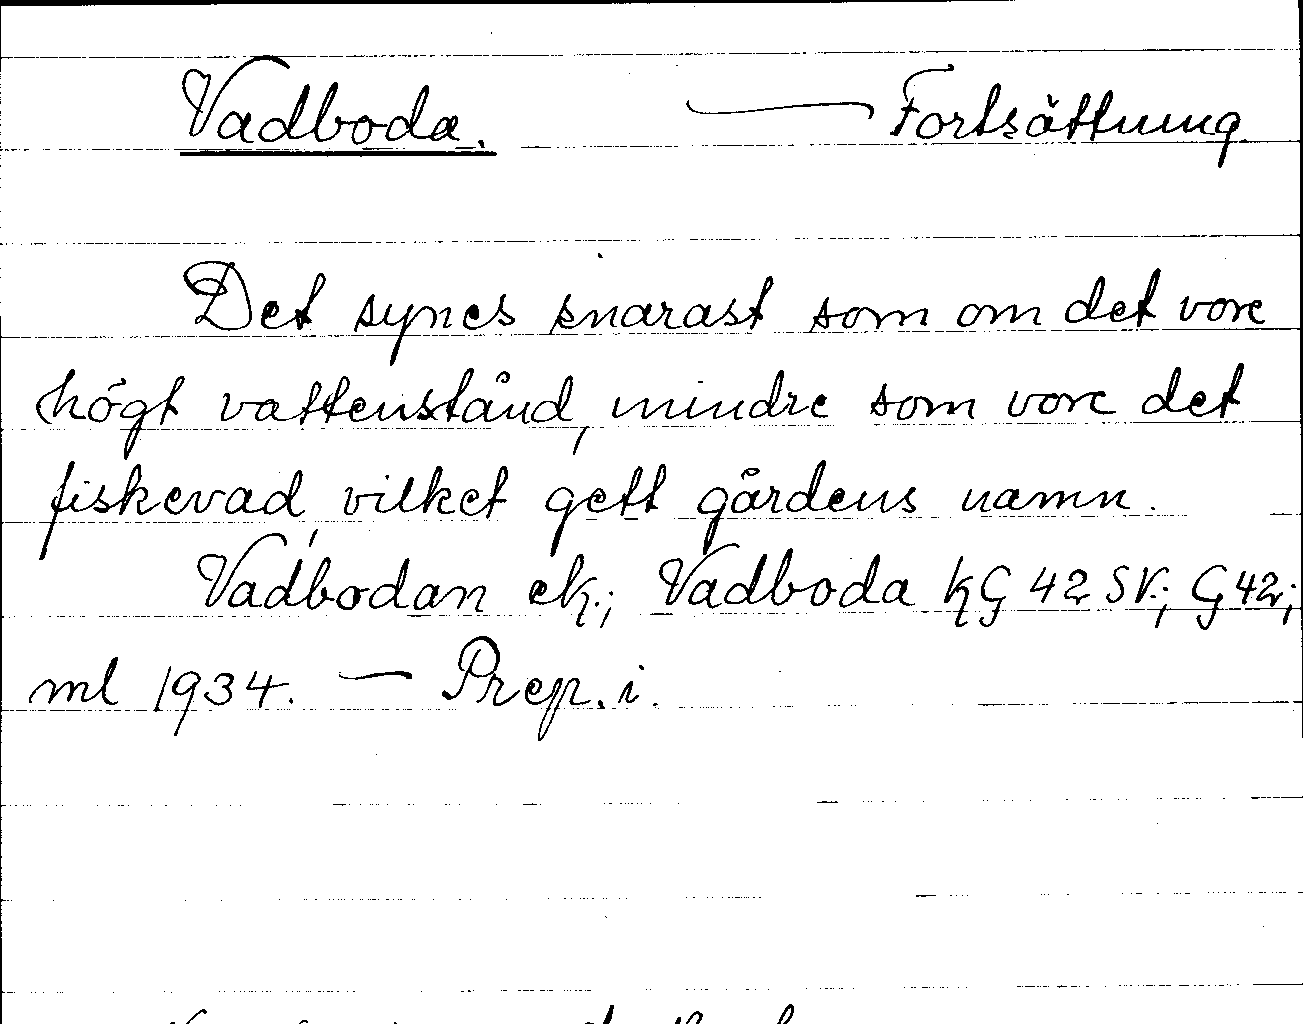 Vadboda. — Fortsättning
Det synes snarast som om det vore
högt vattenstånd, mindre som vore det
fiskevad, vilket gett gårdens namn.
Vadbodan ek.; Vadboda kG 42 SV.; G 42;
ml 1934. — Prep. i.